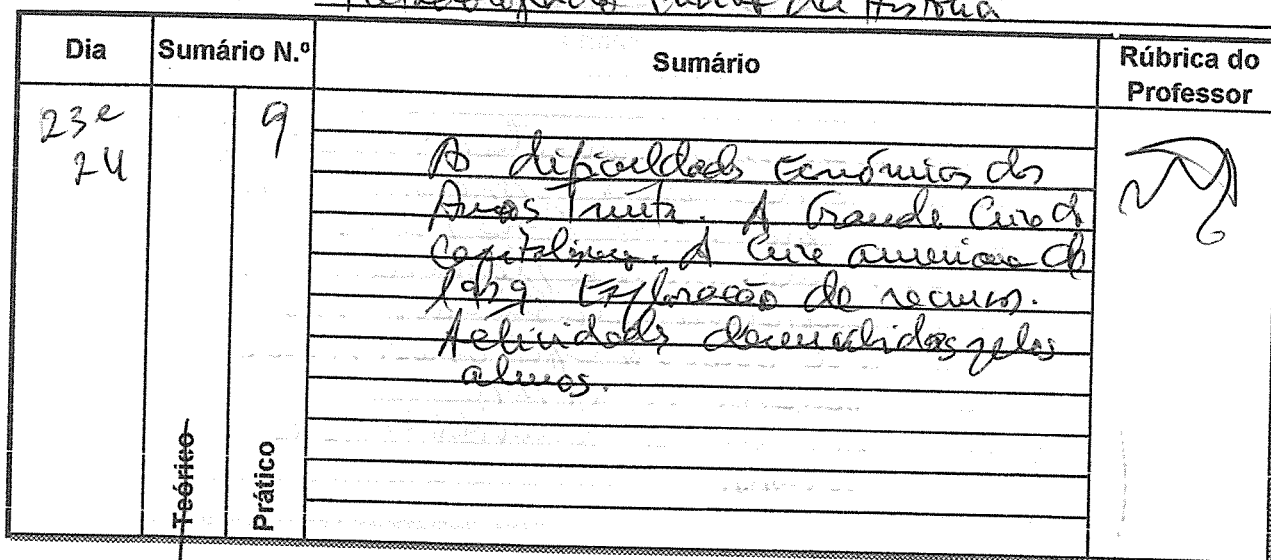 da História
Dia
Sumário N.º
Sumário
Rúbrica do
Professor
23 e
24
9
As dificuldades Económicas dos
Anos Trinta. A Grande Crise do
capitalismo. A Crise americana de
1929. Exploração de recursos.
Actividades desenvolvidas pelos
alunos.
Teórico
Prático